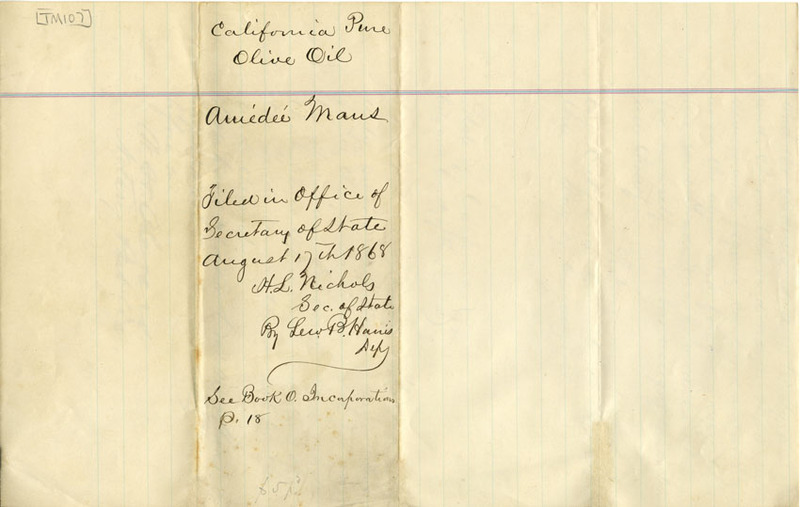 [TM107]
California Pure
Olive Oil
Amédée Mans
Filed in Office of
Secretary of State
August 17th 1868
H. L. Nichols
Sec. of State
By Lew. B. Harris
Depy
See Book O. Incorporations
P. 18